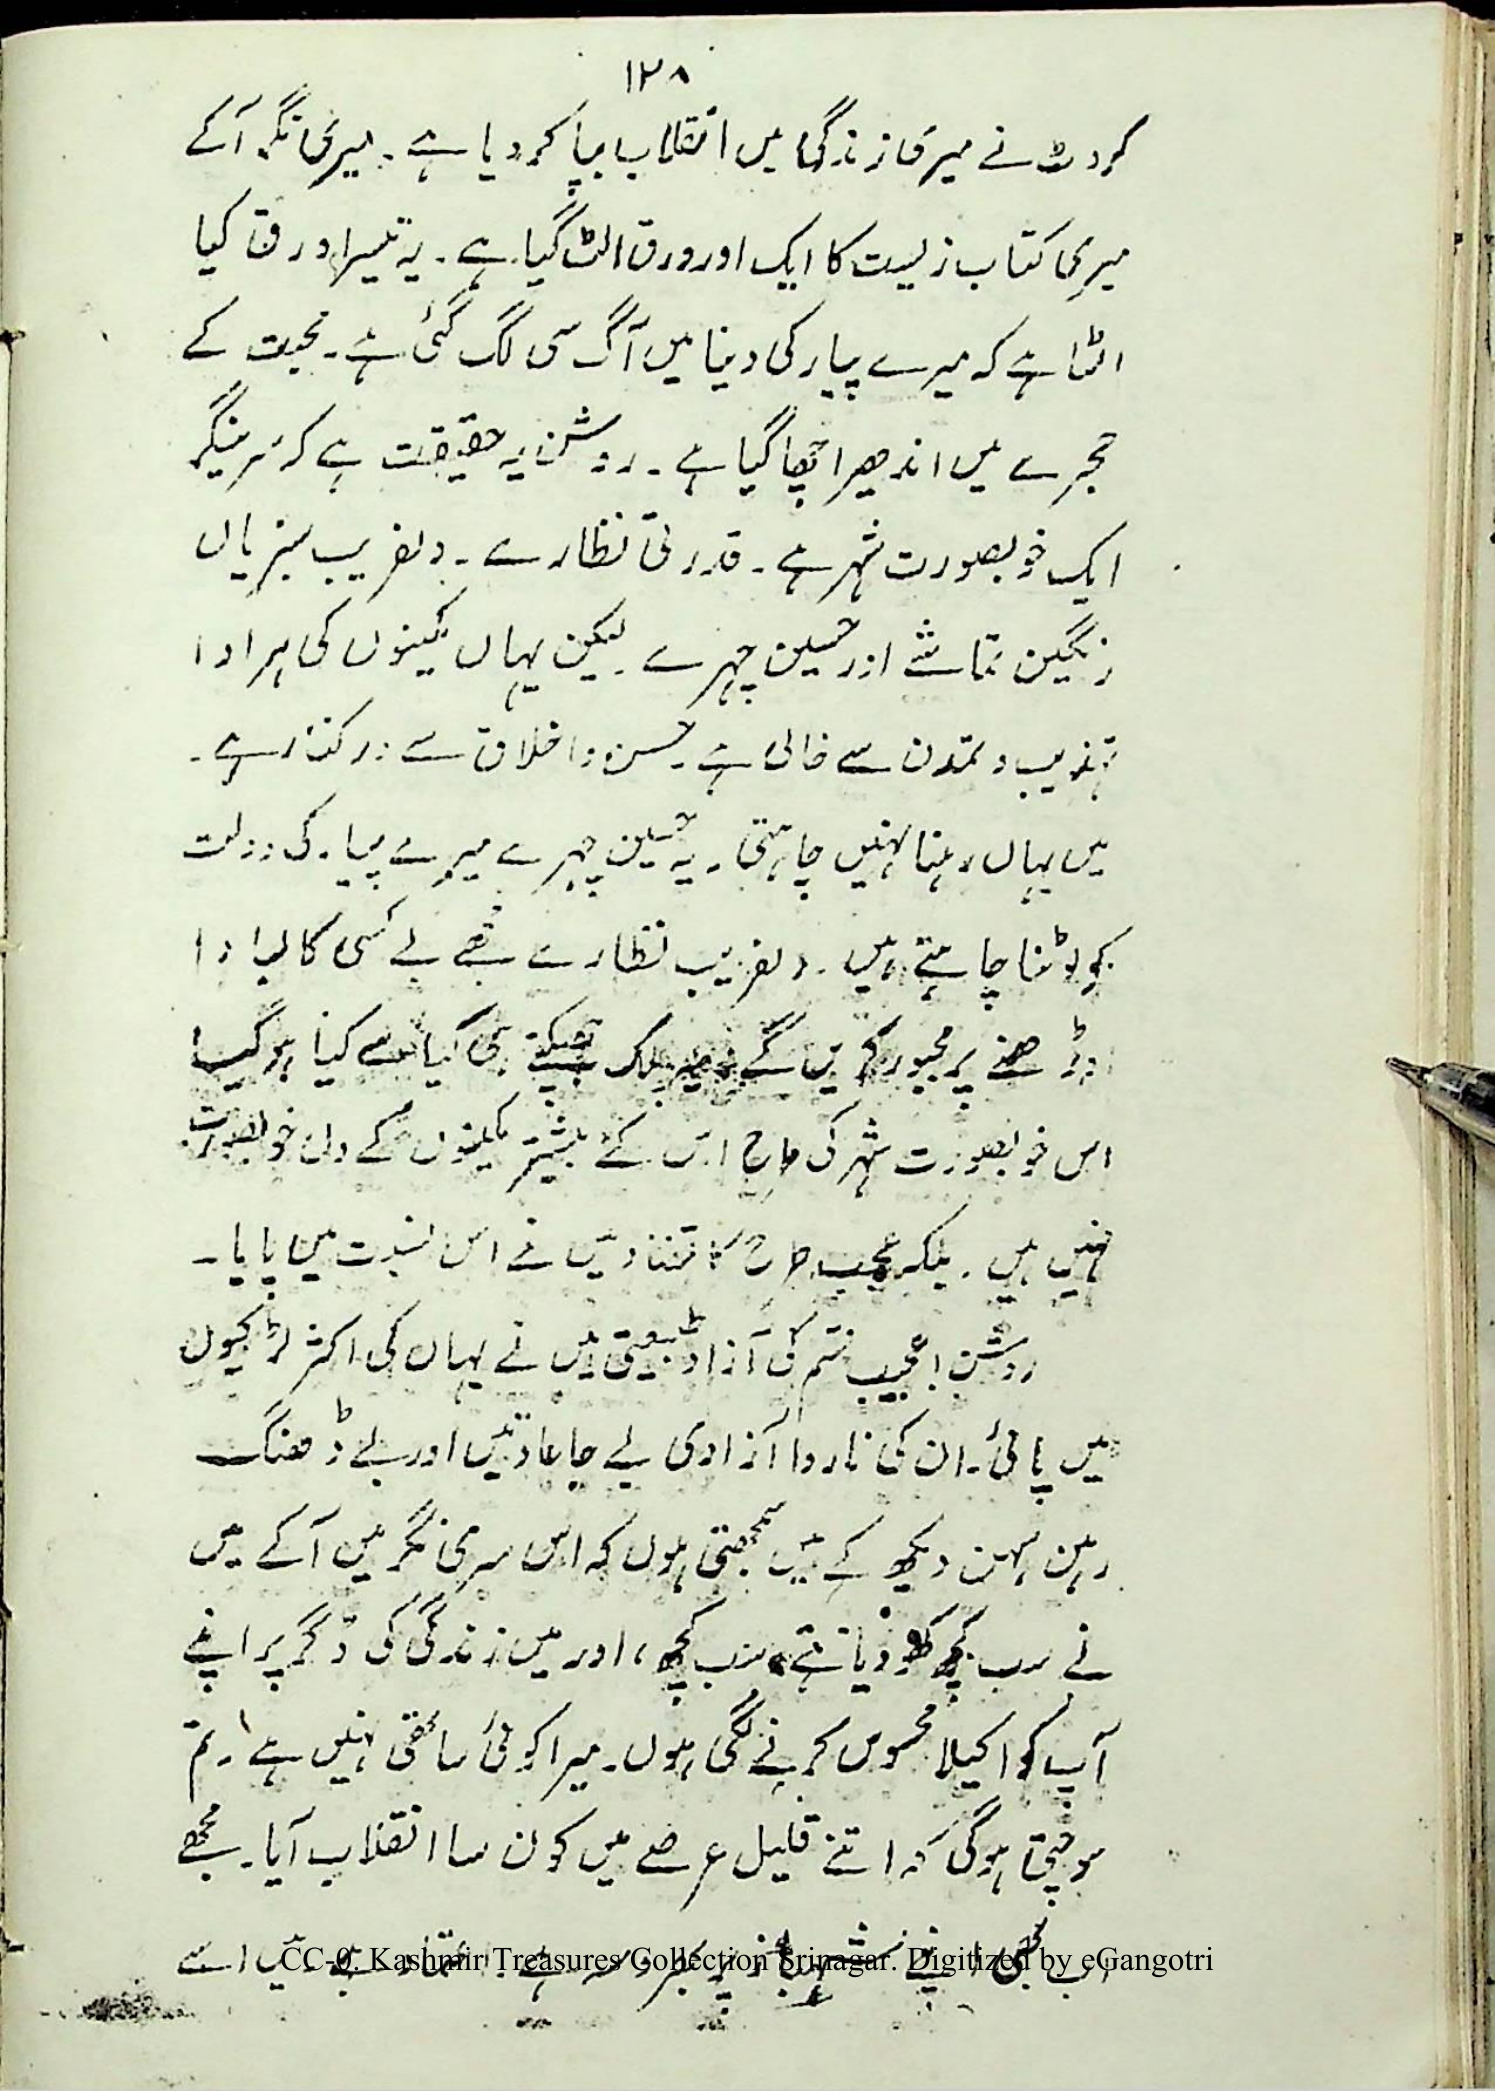 ۱۲۸
کروٹ نے میری زندگی میں انقلاب بپا کر دیا ہے۔ سرینگر آکے
میری کتاب زیست کا ایک اور ورق الٹ گیا ہے۔ یہ تیسرا ورق کیا
الٹا ہے کہ میرے پیار کی دنیا میں آگ سی لگ گئی ہے۔ محبت کے
حجرے میں اندھیرا چھا گیا ہے۔ روشن یہ حقیقت ہے کہ سرینگر
ایک خوبصورت شہر ہے۔ قدرتی نظارے۔ دلفریب سبزیاں
رنگین تماشے اور حسین چہرے۔ لیکن یہاں مکینوں کی ہر ادا
تہذیب و تمدن سے خالی ہے۔ حسن و اخلاق سے درکنار ہے۔
میں یہاں رہنا نہیں چاہتی۔ یہ حسین چہرے میرے پیار کی دولت
کو لوٹنا چاہتے ہیں۔ دلفریب نظارے مجھے بے کسی کا لبادا
اوڑھنے پر مجبور کریں گے۔ پلک جھپکتے ہی کیا سے کیا ہو گیا
اس خوبصورت شہر کی طرح اس کے بیشتر مکینوں کے دل خوبصورت
نہیں ہیں۔ بلکہ عجیب طرح کا تضاد میں نے اس نسبت میں پایا۔
روشن! عجیب قسم کی آزاد طبیعتی میں نے یہاں کی اکثر لڑکیوں
میں پائی۔ ان کی ناروا آزادی بے جا عادتیں اور بے ڈھنگ
رہن سہن دیکھ کے میں سمجھتی ہوں کہ اس سری نگر میں آکے میں
نے سب کچھ کھو دیا ہے۔ سب کچھ، اور میں زندگی کی ڈگر پر اپنے
آپ کو اکیلا محسوس کرنے لگی ہوں۔ میرا کوئی ساتھی نہیں ہے۔ تم
سوچتی ہوگی کہ اتنے قلیل عرصے میں کون سا انقلاب آیا۔ مجھے
اب بھی اپنے شہباز پر بھروسہ ہے۔ اعتماد ہے۔ میں اسے
CC-0. Kashmir Treasures Collection Srinagar. Digitized by eGangotri